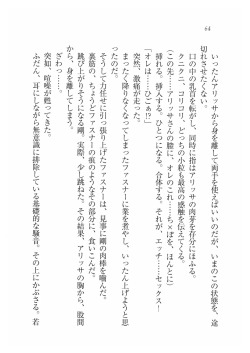 64
いったんアリッサから身を離して両手を使えばいいのだが、いまのこの状態を、途
切れさせたくない。
口の中の乳首を転がし、同時に指はアリッサの肉芽を存分にほふる。
クニクニ、コリコリ、どっちの小粒も最高の感触を伝えてくる。
(この先……アリッサさんの膣に、オレのこれ……ち×ぽを、ほんとに)
挿れる。挿入する。ひとつになる、合体する。それが、エッチ……セックス！
「オレは……ひごぉ!?」
突然、激痛が走った。
まったく降りなくなってしまったファスナーに業を煮やし、いったん上げようと思
ったのだ。
そうして力任せに引っ張り上げたファスナーは、見事に剛の肉棒を噛んだ。
裏筋の、ちょうどファスナーの痕のようなその部分に、食いこんだ。
跳び上がりそうになる剛。実際、少し跳ねた。その結果、アリッサの胸から、股間
から、身を離してしまう。
ざわっ……。
突如、喧噪が甦ってきた。
ふだん、耳にしながら無意識に排除している基礎的な騒音、その上にかぶさる、若